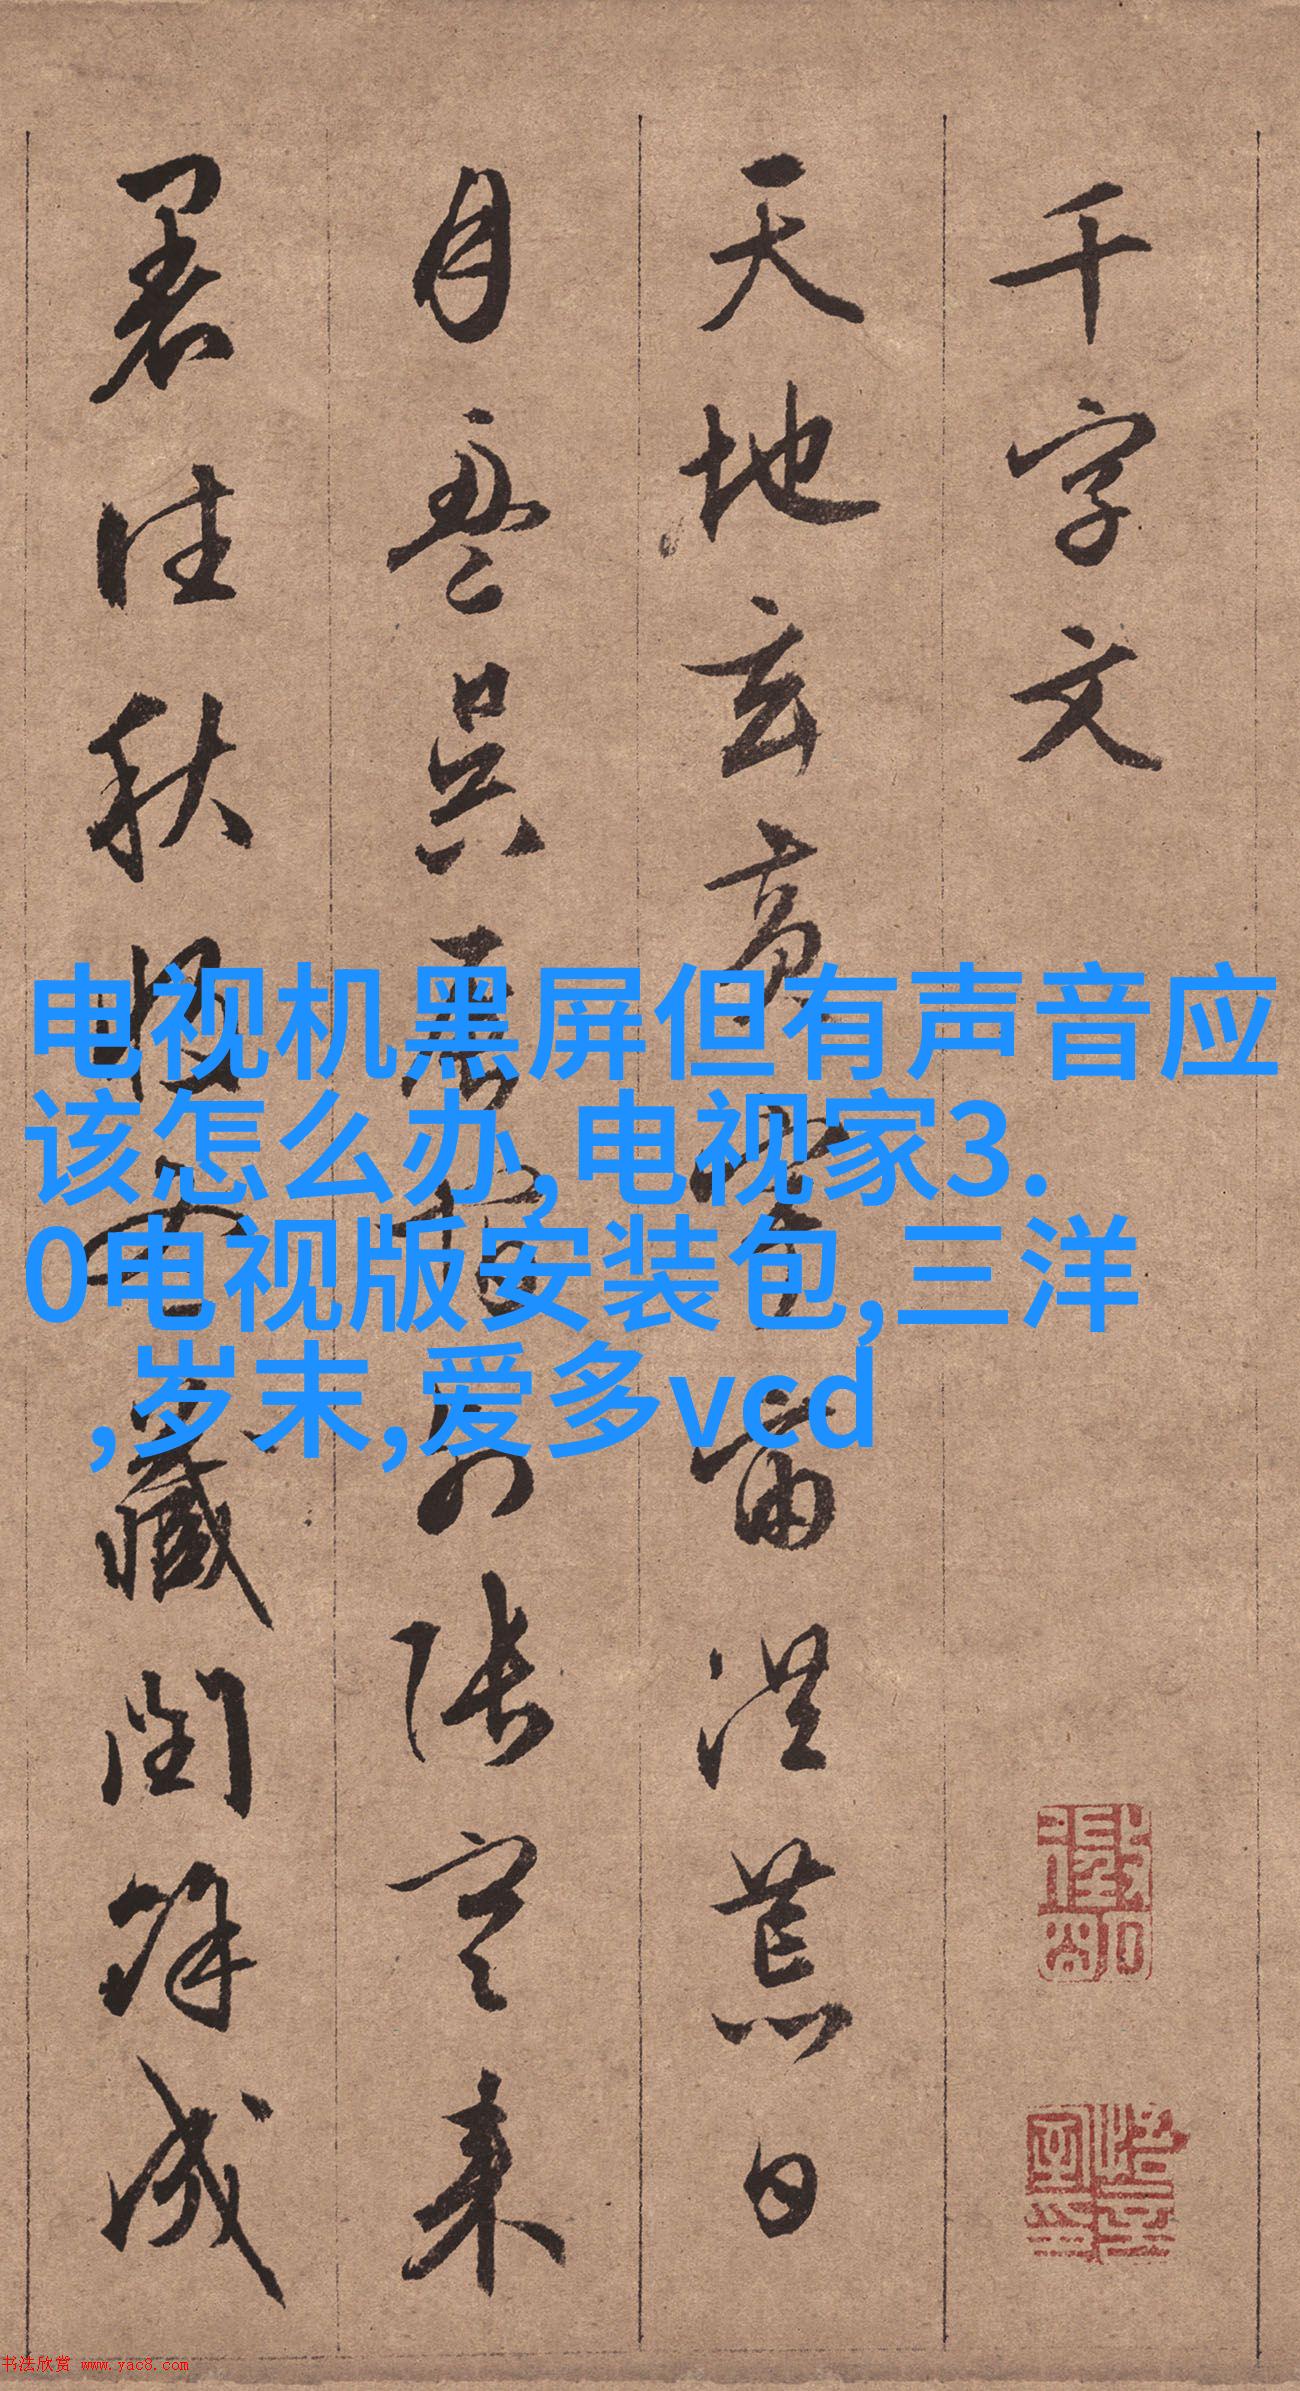 千字文
天地玄黃宇宙洪荒日
月盈昃辰宿列張寒来
暑往秋收冬藏閏餘成
电视机黑屏但有声音应
该怎么办,电视家3.
0电视版安装包,三洋
,岁末,爱多vcd
书法欣赏 www.yac8.com